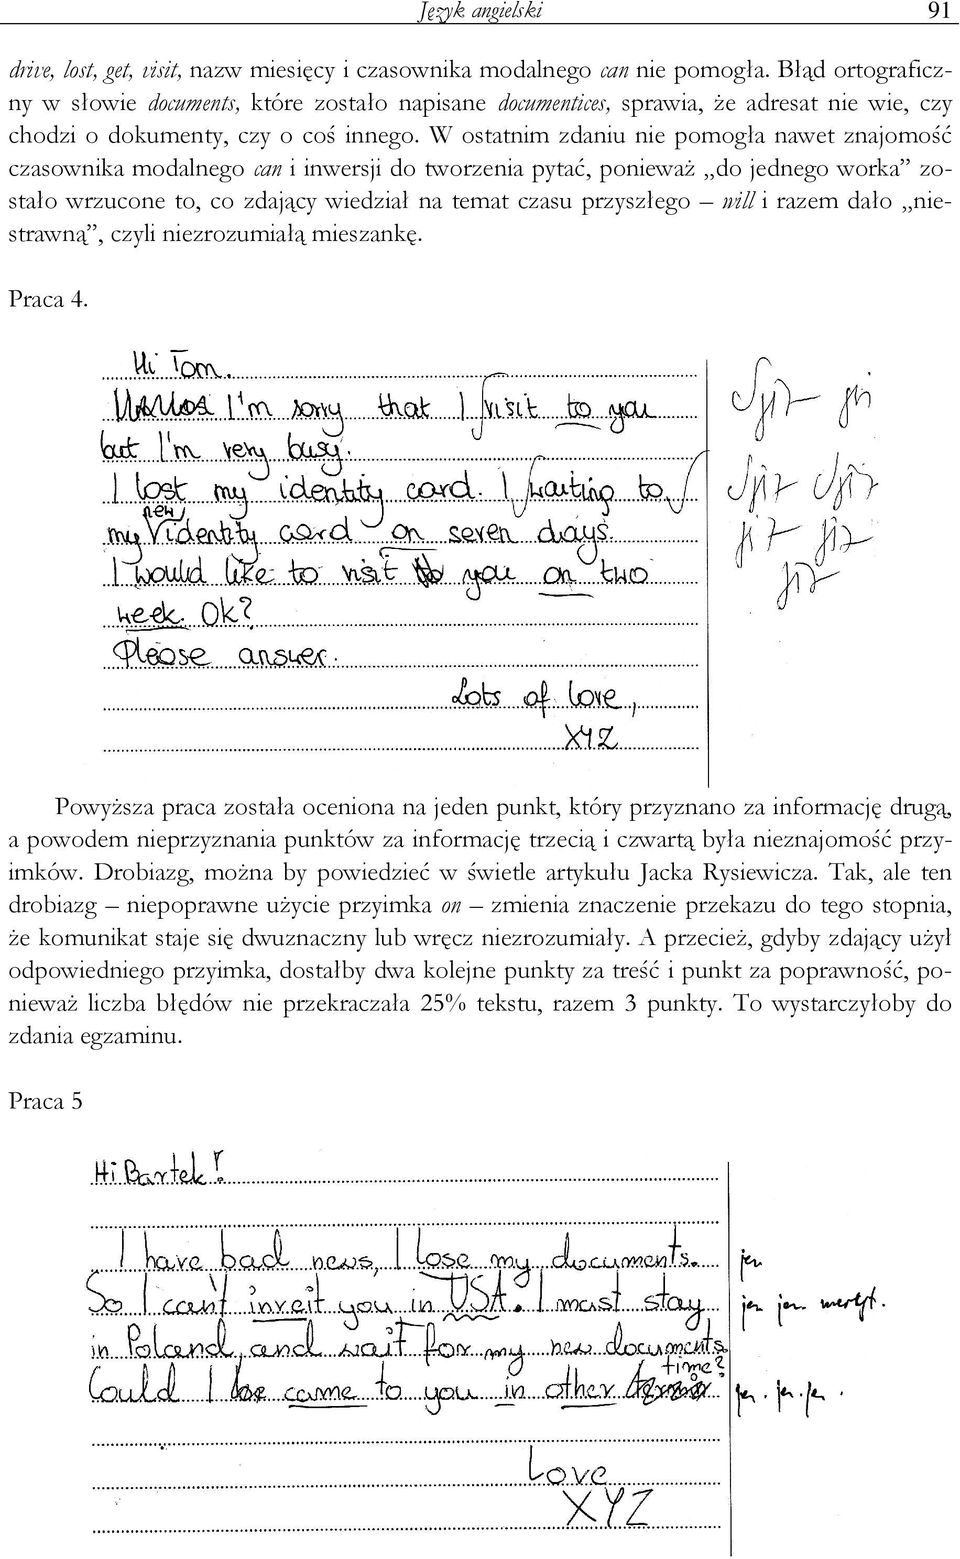 Język angielski 91
drive, lost, get, visit, nazw miesięcy i czasownika modalnego can nie pomogła. Błąd ortograficz-
ny w słowie documents, które zostało napisane documentices, sprawia, że adresat nie wie, czy
chodzi o dokumenty, czy o coś innego. W ostatnim zdaniu nie pomogła nawet znajomość
czasownika modalnego can i inwersji do tworzenia pytać, ponieważ „do jednego worka” zo-
stało wrzucone to, co zdający wiedział na temat czasu przyszłego – will i razem dało „nie-
strawną”, czyli niezrozumiałą mieszankę.
Praca 4.
Hi Tom.
I'm sorry that I visit to you
but I'm very busy.
I lost my identity card. I waiting to
my new identity card on seven days.
I would like to visit to you on two
week. Ok?
Please answer.
Lots of love,
XYZ
Powyższa praca została oceniona na jeden punkt, który przyznano za informację drugą,
a powodem nieprzyznania punktów za informację trzecią i czwartą była nieznajomość przy-
imków. Drobiazg, można by powiedzieć w świetle artykułu Jacka Rysiewicza. Tak, ale ten
drobiazg – niepoprawne użycie przyimka on – zmienia znaczenie przekazu do tego stopnia,
że komunikat staje się dwuznaczny lub wręcz niezrozumiały. A przecież, gdyby zdający użył
odpowiedniego przyimka, dostałby dwa kolejne punkty za treść i punkt za poprawność, po-
nieważ liczba błędów nie przekraczała 25% tekstu, razem 3 punkty. To wystarczyłoby do
zdania egzaminu.
Praca 5
Hi Bartek!
I have bad news, I lose my documents. jęz
So I can't inveit you in USA. I must stay jęz jęz
in Poland, and wait for my new documents.
Could I be came to you in other time?
Love
XYZ